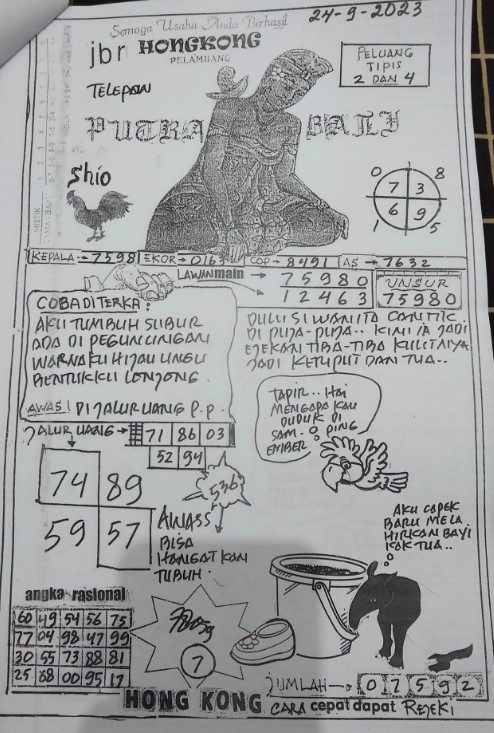 Semoga Usaha Anda Berhasil
24-9-2023
jbr HONGKONG
PELAMBANG
PELUANG
TIPIS
2 DAN 4
TELEPON
PUTRA BALI
Shio
0 8
7 3
6 9
1 5
KEPALA → 7598 EKOR → 0163 COP → 8491 AS → 7632
LAWAN main → 75980
12463
UNSUR
75980
COBA DI TERKA :
AKU TUMBUH SUBUR
ADA DI PEGUNUNGAN
WARNAKU HIJAU UNGU
BENTUKKU LONJONG.
DULU SI WANITA CANTIK
DI PUJA-PUJA.. KINI IA JADI
EJEKAN TIBA-TIBA KULITNYA
JADI KERIPUT DAN TUA..
AWAS! DI JALUR UANG P.P.
JALUR UANG → 71 86 03
52 94
TAPIR.. HAI
MENGAPA KAU
DUDUK DI
SAM- PING
EMBER
74 89
59 57
536
AWASS
BISA
HANGATKAN
TUBUH.
AKU CAPEK
BARU MELA
HIRKAN BAYI
KAK TUA..
angka rasional
60 49 54 56 75
77 04 98 47 99
30 55 73 88 81
25 68 00 95 17
7
JUMLAH → 0 7 5 9 2
HONG KONG CARA cepat dapat REJEKI